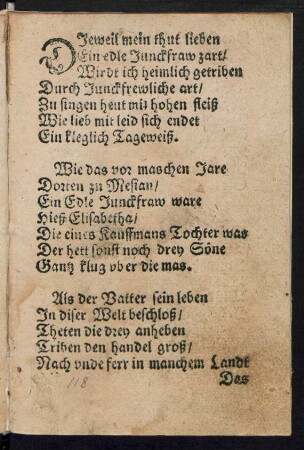 DJeweil mein thut lieben
Ein edle Junckfraw zart/
Wirdt ich heimlich getriben
Durch Junckfrewliche art/
Zu singen heut mit hohen fleiß
Wie lieb mit leid sich endet
Ein kleglich Tageweiß.
Wie das vor manchen Jare
Dorten zu Messan/
Ein Edle Junckfraw ware
Hieß Elisabetha/
Die eines Kauffmans Tochter was
Der hett sonst noch drey Söne
Gantz klug vber die mas.
Als der Vatter sein leben
In diser Welt beschloß/
Theten die drey anheben
Triben den handel groß/
Nach vnde ferr in manchem Landt
Das
118